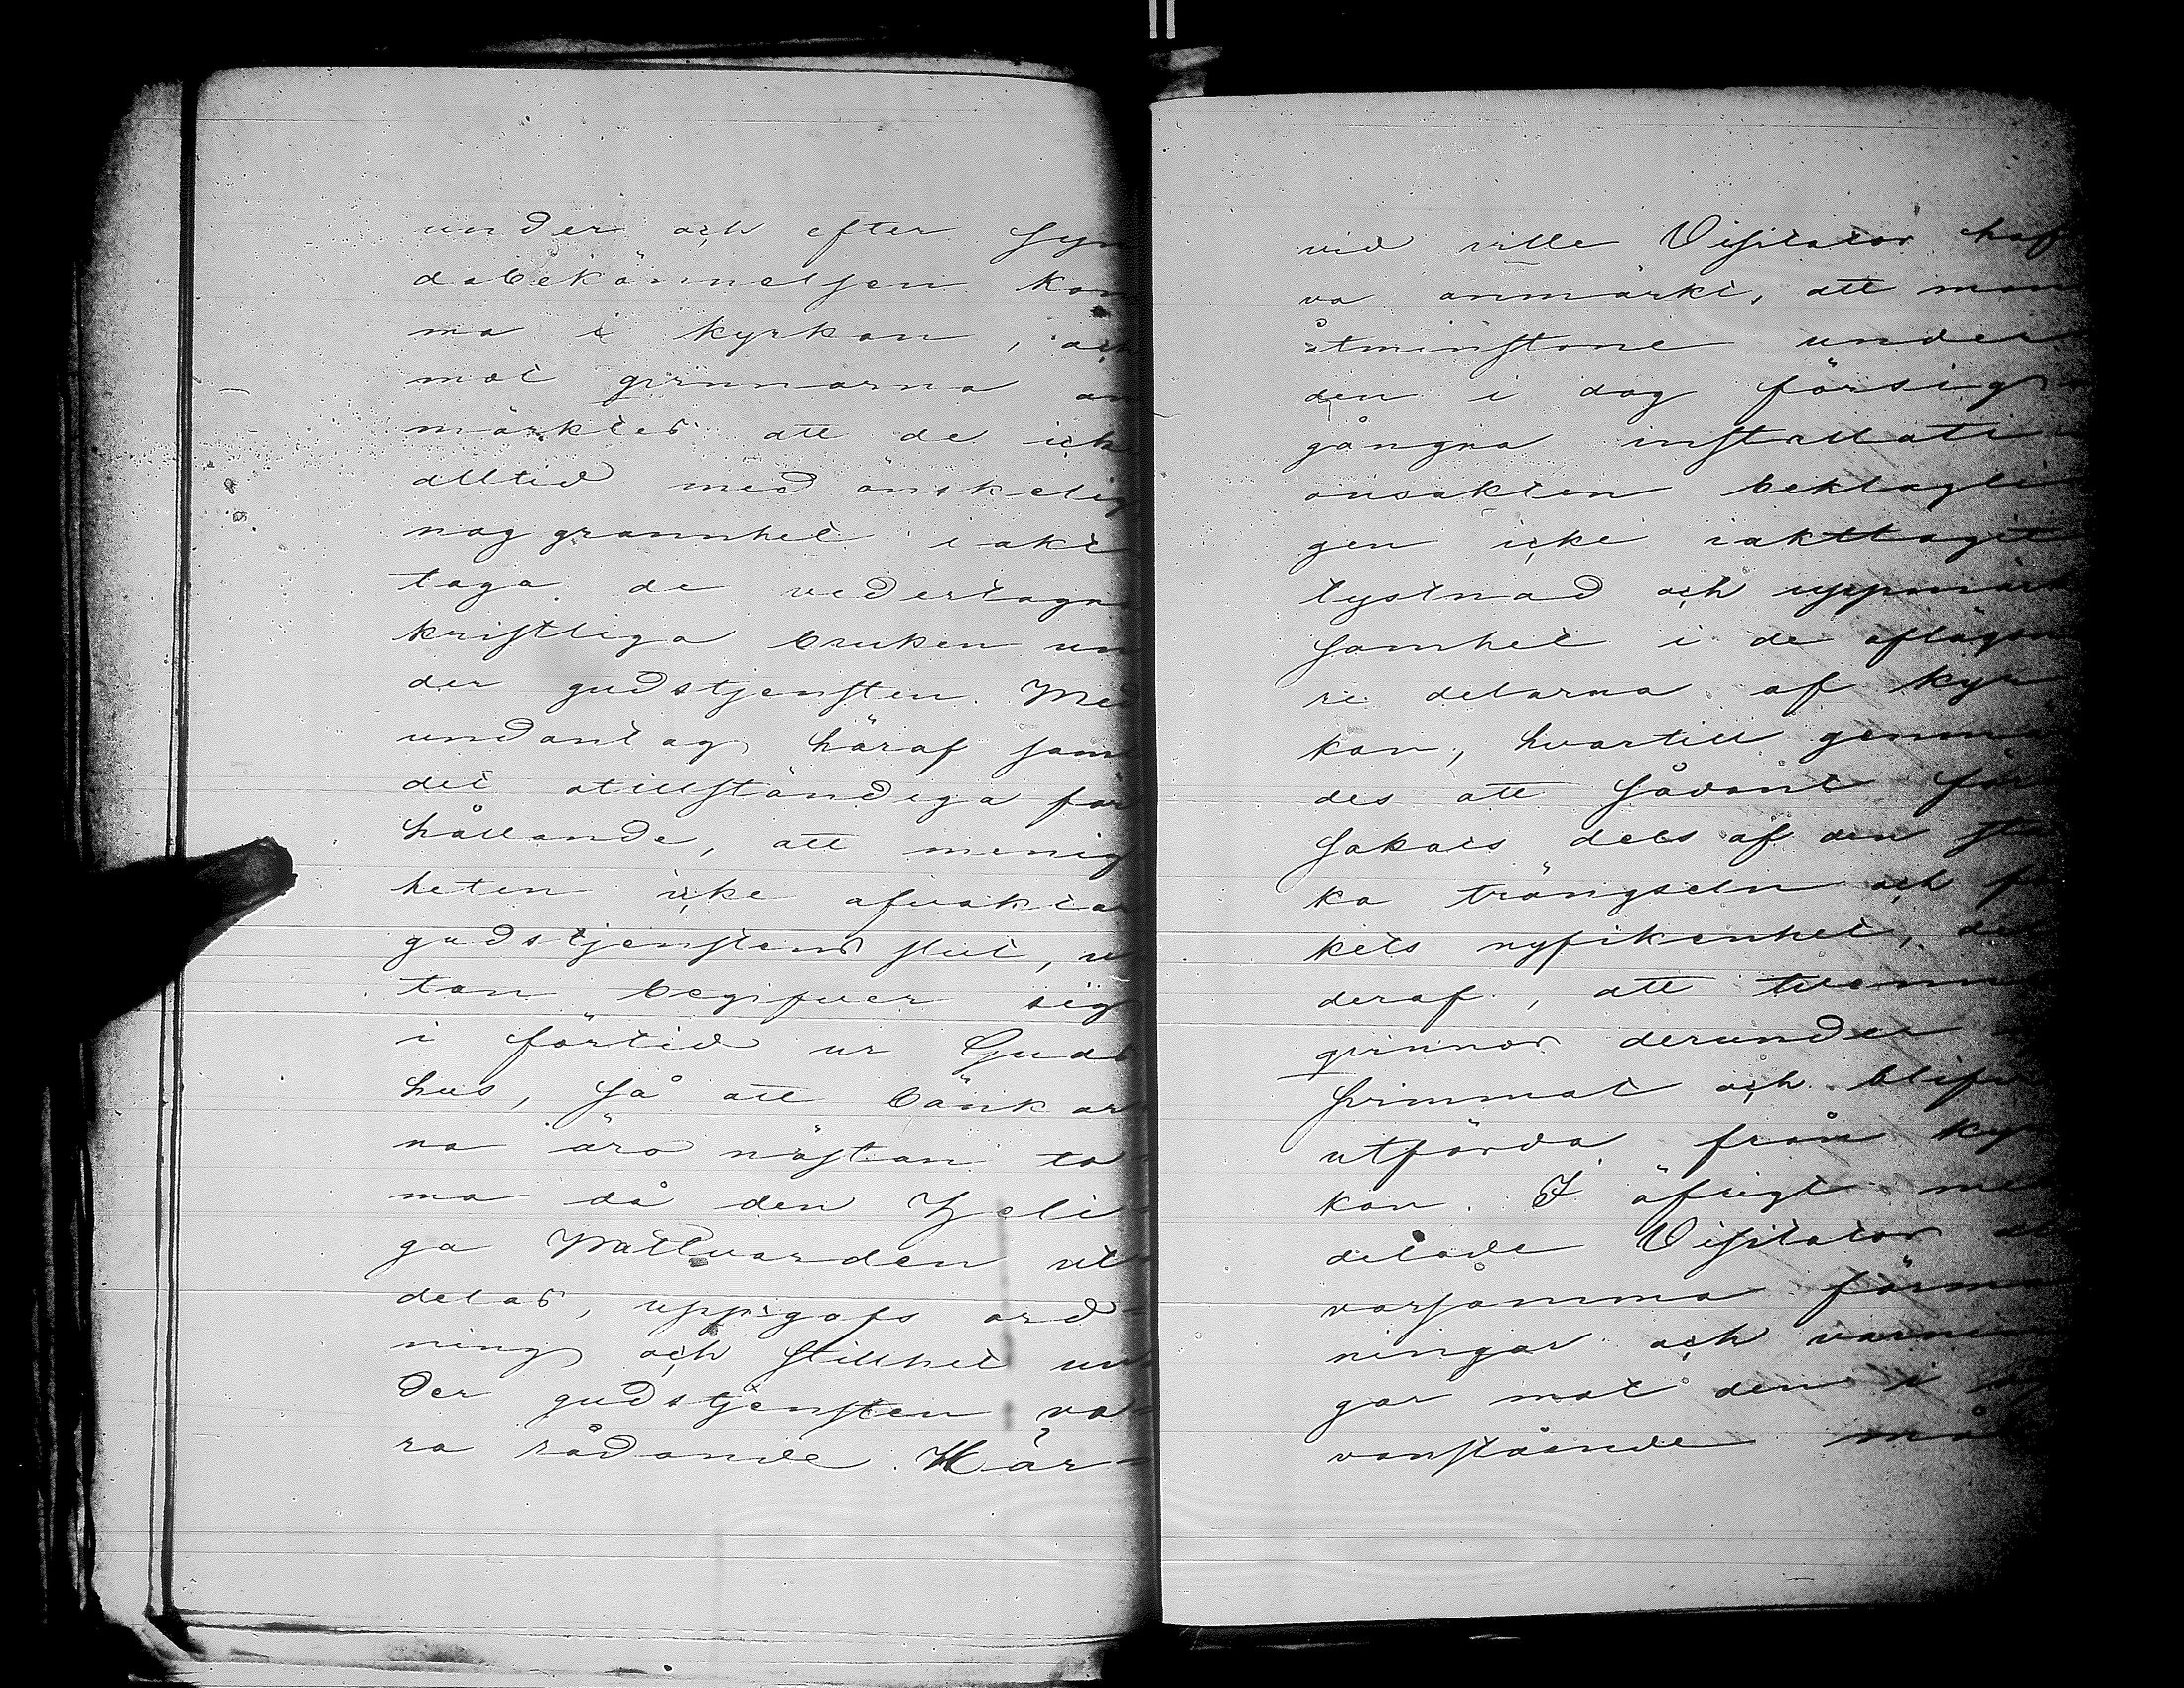 under och efter syn
dabekännelsen kom
ma i kyrkan, och
mot qvinnorna an
märktes att de ick
alltid med önskelig
noggrannhet iakt
taga de vedertagna
kristliga bruken un
der gudstjensten. Med
undantag häraf samt
det otillständiga för
hållande, att menig
heten icke afvaktar
gudstjenstens slut, u
tan begifver sig
i förtid ur Guds
hus, så att bänkar
na äro nästan to-
ma då den Heli-
ga Nattvarden ut
delas, uppgafs ord-
ning och stillhet un
der gudstjensten va-
ra rådande. Här-
vid ville Visitator haf
va anmärkt, att man
åtminstone under
den i dag försig
gångna installati
onsakten beklagli
gen icke iakttagit
tystnad och uppmärk
samhet i de aflägsna
re delarna af kyr
kan, hvartill genmä
des att sådant för
sakats dels af den star
ka trängseln och fol
kets nyfikenhet, dels
deraf, att tvenne
qvinnor derunder
svimmat och blifvit
utförda från kyr
kan. I öfrigt med
delade Visitator al
varsamma förma
ningar och varnin
gar mot den i
vanstående må